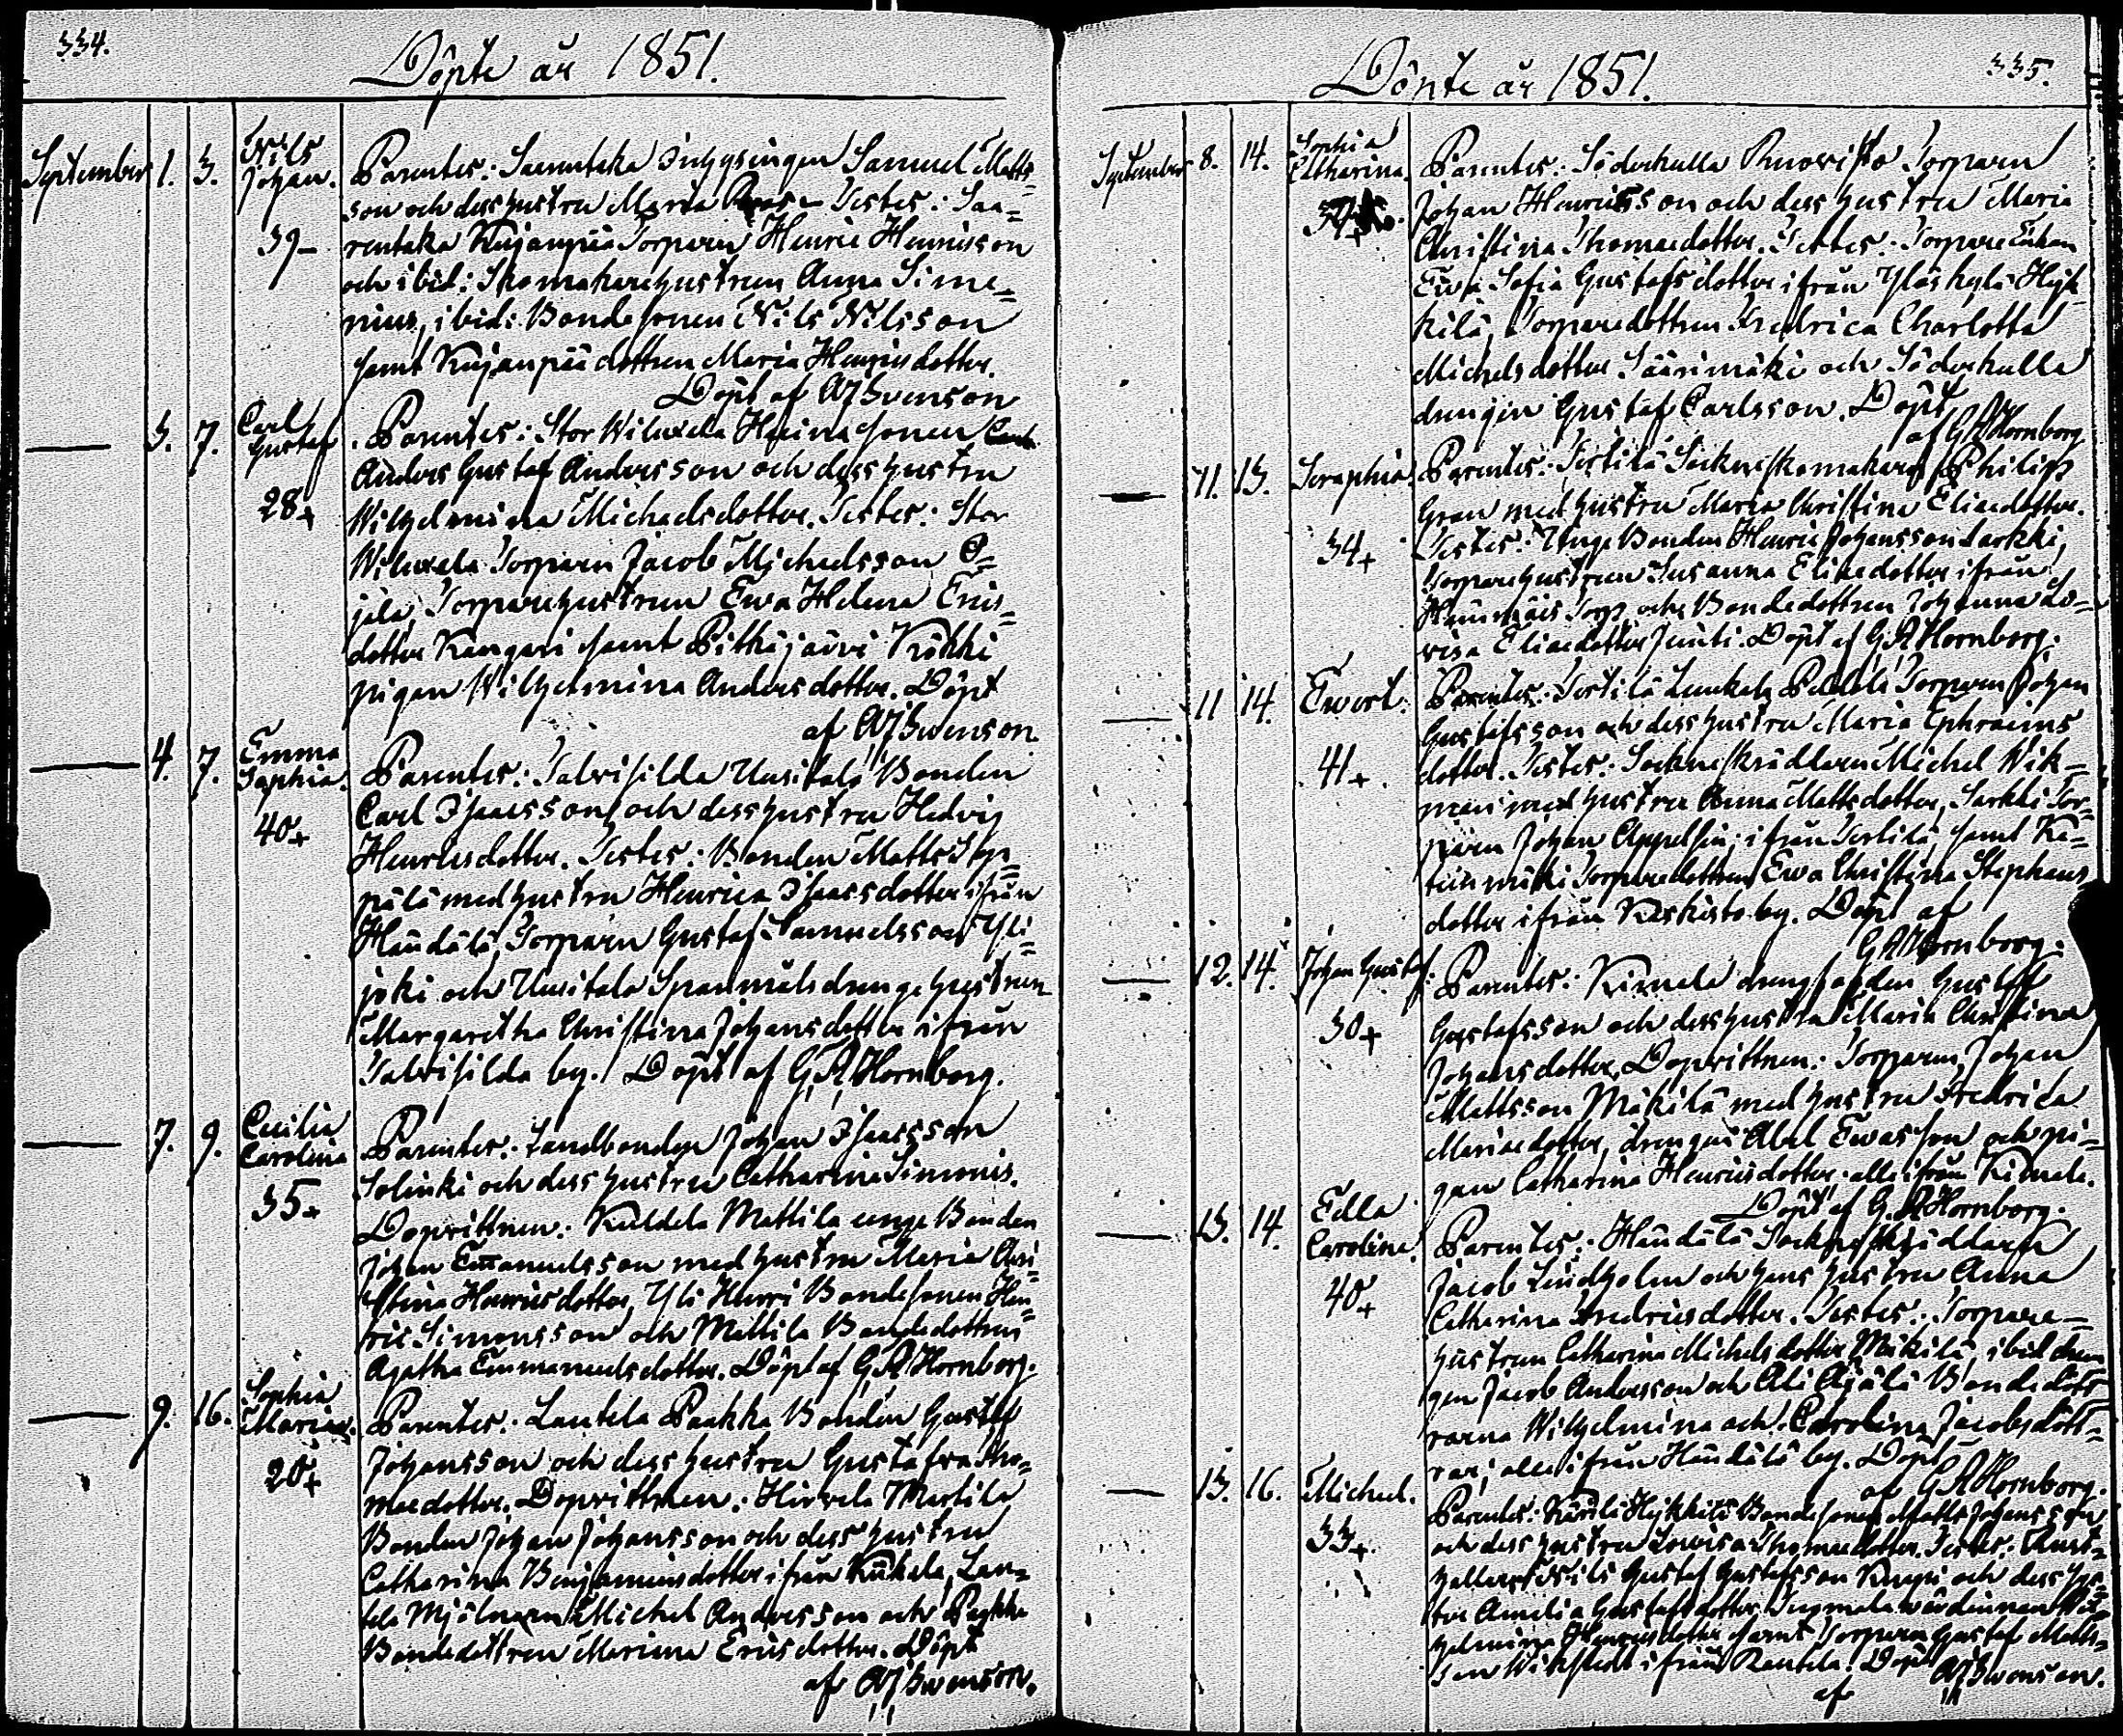 334.
Döpte år 1851.
September 1. 3. Nils Johan. 39
Parentes: Samuel Matts-
son och dess hustru Maria Testes: Saa-
rentaka Kujanpää Torparen Henric Henricsson
och ibid: Skomakarehustrun Anna Sime-
nius, ibid: Bondesonen Nils Nilsson
samt Kujanpää dottren Maria Henricsdotter.
Döpt af Svenson
3. 7. Carl Gustaf 28+
Parentes: Stor Wiluxela sonen
Anders Gustaf Andersson och dess hustru
Wilhelmina Michaelsdotter. Testes: Stor
Wiluxela Torparen Jacob Michelsson O-
jala, Torparehustrun Ewa Helena Erics-
dotter Kangari samt Pitkäjärvi Kökki
pigan Wilhelmina Andersdotter. Döpt
af Svenson
4. 7. Emma Sophia. 40+
Parentes: Talvisilda Uusitalo Bonden
Carl Isaacsson och dess hustru Hedvig
Henricsdotter. Testes: Bonden Matts Sep-
pälä med hustru Henrica Isaacsdotter ifrån
Haudälä, Torparen Gustaf Samuelsson Yli-
joki och Uusitalo Spanmålsdrängehustrun
Margaretha Christina Johansdotter ifrån
Talvisilda by. Döpt af G. A. Hornborg.
7. 9. Cecilia Carolina 35+
Parentes: Landbonden Johan Isaacsson
Solinki och dess hustru Catharina Simonis.
Dopvittnen: Kuldela Mattila unge Bonden
Johan Emanuelsson med hustru Maria Chri-
stina Henricsdotter, Yli Hurri Bondesonen Hen-
ric Simonsson och Mattila Bondedottren
Agatha Emmanuelsdotter. Döpt af G. A. Hornborg.
9. 16. Sophia Maria. 20+
Parentes: Lautela Paakka Bonden Gustaf
Johansson och dess hustru Gustafva Tho-
maedotter. Dopvittnen: Hirvela Marttila
Bonden Johan Johansson och dess hustru
Catharina Benjaminsdotter ifrån Kukola, Lau-
tela Mjölnaren Michel Andersson och Paakka
Bondedottren Mariana Ericsdotter. Döpt
af Svenson.
335.
Döpte år 1851.
September 8. 14. Sophia Catharina.
Parentes: Söderkulla Ruovisto Torparen
Johan Henricsson och dess hustru Maria
Christina Thomaedotter. Testes: Torpare Enkan
Ewa Sofia Gustafsdotter ifrån Yläskylä Hyk-
kilä, Torparedottren Fredrica Charlotta
Michelsdotter Säärimäki och Söderkulla
drängen Gustaf Carlsson. Döpt
af G A Hornborg
11. 13. Seraphia. 34+
Parentes: Tertilä Sockneskomakaren Philip
Gran med hustru Maria Christina Eliaedotter.
Testes: Unge Bonden Henric Johansson Sarkki,
Torparehustrun Susanna Eliaedotter ifrån
Torp och Bondedottren Johanna Lo-
visa Eliaedotter Junti. Döpt af G. A Hornborg.
11 14. Ewert. 41+
Parentes: Tertilä Torparen Johan
Gustafsson och dess hustru Maria Ephraims
dotter. Testes: Sockneskräddaren Michel Wik-
man med hustru Anna Mattsdotter, Sarkki Tor-
paren Johan Appelfin; ifrån Tertilä, samt Ka-
Torparedottren Ewa Christina Stephans-
dotter ifrån Keskisto by. Döpt af
G A Hornborg.
12. 14. Johan Gustaf. 30+
Parentes: Kimala Gustaf
Gustafsson och dess hustru Maria Christina
Johansdotter, Dopvittnen: Torparen Johan
Mattsson Mäkilä med hustru Fredrica
Mariaedotter, drängen Abel Ewasson och pi-
gan Catharina Henricsdotter: alla ifrån Kimala.
Döpt af G. A Hornborg.
13. 14. Edla Carolina. 40+
Parentes: Haudälä Sockneskräddaren
Jacob Lindholm och hans hustru Anna
Catharina Fredricsdotter. Testes: Torpare-
hustrun Catharina Michelsdotter Mäkilä, ibid drän-
gen Jacob Andersson och Ali Äijälä Bondedött-
rarna Wilhelmina och Carolina Jacobsdött-
rar; alla ifrån Haudälä by. Döpt
af G A Hornborg.
13. 16. Michel. 33+.
Parentes: Hykkilä Bondesonen Matts Johansson
och dess hustru Lovisa Thomaedotter. Testes: Rust-
hållaren Nils Gustaf Gustafsson Knapi och dess hus-
tru Amilia Gustafsdotter, värdinnan Wil-
helmina Henricsdotter samt Torparen Gustaf Matts-
son Wikstedt ifrån Rautela. Döpt
af Svenson.